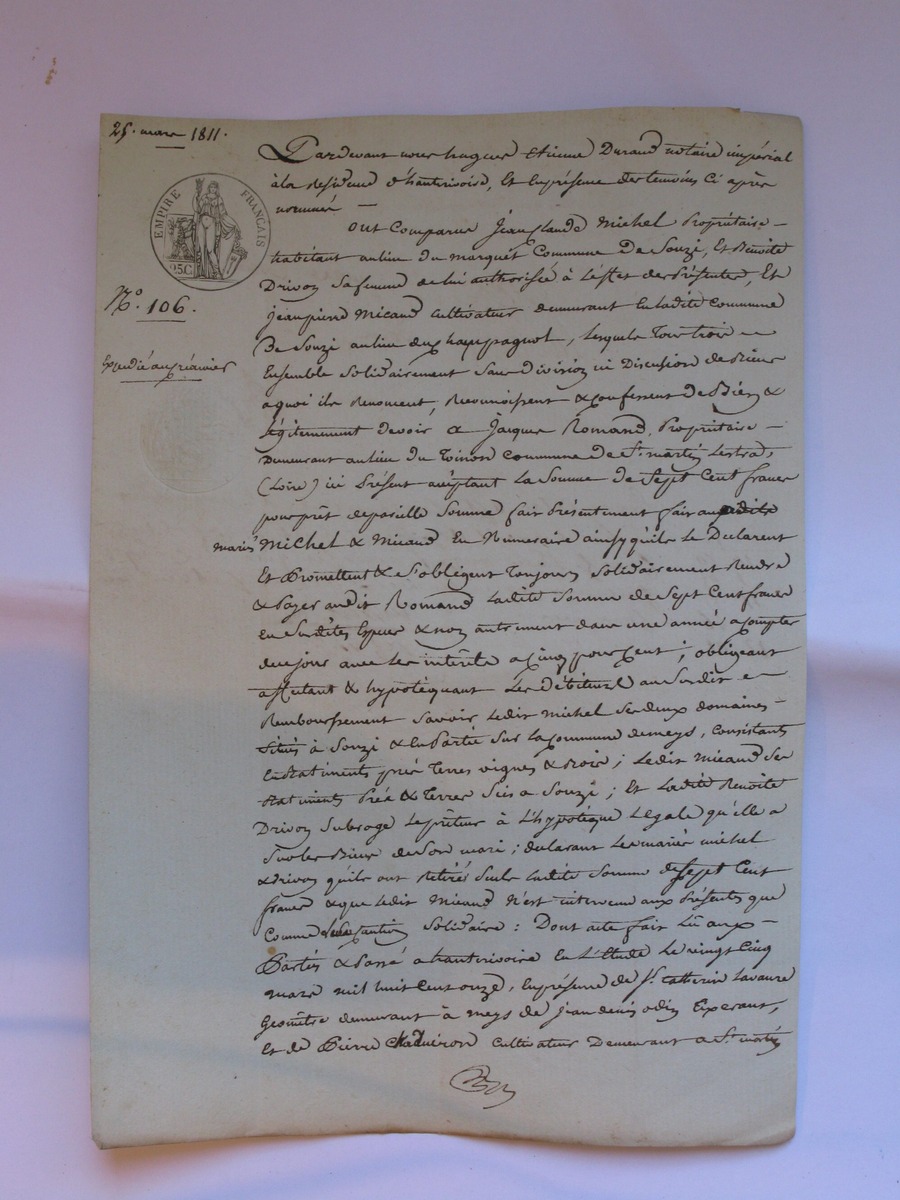 25. mars 1811.
EMPIRE FRANÇAIS
25C
N.o 106.
Expédié au créancier
Pardevant nous hugues Etienne Durand notaire impérial
à la Residence d'hauterivoire, Et En présence des temoins Ci après
nommés —
Ont Comparu Jean Claude Michel Propriétaire —
habitant au lieu du marquet Commune De Souzi, Et Benoite
Drivon Sa femme de lui authorisée à L'effet des Présentes, Et
Jean pierre Micaud Cultivateur demeurant En ladite Commune
De Souzi au lieu du Champagnot, lesquels Tous trois —
Ensemble Solidairement Sans division ni Discussion de Biens
a quoi ils Renoncent, Reconnoissent & Confessent De Bien &
Légitimement devoir a Jacques Romand, Propriétaire —
Demeurant au lieu du Toinon Commune De St. martin Lestra,
(Loire) ici Présent acceptant La Somme de Sept Cent francs
pour prêt de pareille Somme fait Présentement fait auxdits
mariés Michel & Micaud En Numeraire ainsy qu'ils Le Declarent
Et Promettent & S'obligent Toujours Solidairement Rendre
& Payer audit Romand Ladite Somme de Sept Cent francs
En Susdites Especes & non autrement dans une année a Compter
de ce jour avec Les intérêts a Cinq pour Cent ; obligeant
affectant & hypotéquant Les Débiteurs au Susdit —
Remboursement Savoir Ledit Michel Ses deux domaines —
Situés à Souzi & En Partie Sur La Commune de meys, Consistants
En Batiments prés Terres vignes & Bois ; Ledit Micaud Ses
Batiments Prés & Terres Sis a Souzi ; Et Ladite Benoite
Drivon Subroge Le prêteur à L'hypotéque Légale qu'elle a
Sur les Biens de Son mari ; declarant Les mariés michel
& Drivon qu'ils ont Retiré Seuls Ladite Somme de Sept Cent
francs & que Ledit Micaud N'est intervenu aux Présentes que
Comme Caution Solidaire : Dont acte fait Lu aux —
Parties & Passé a hauterivoire En L'Etude Le vingt Cinq
mars mil huit Cent onze, En présence de Sr. Catherin Lavaure
Géomètre demeurant à meys de Jean denis odin Experant,
Et de Pierre Chadueron Cultivateur Demeurant a St. martin